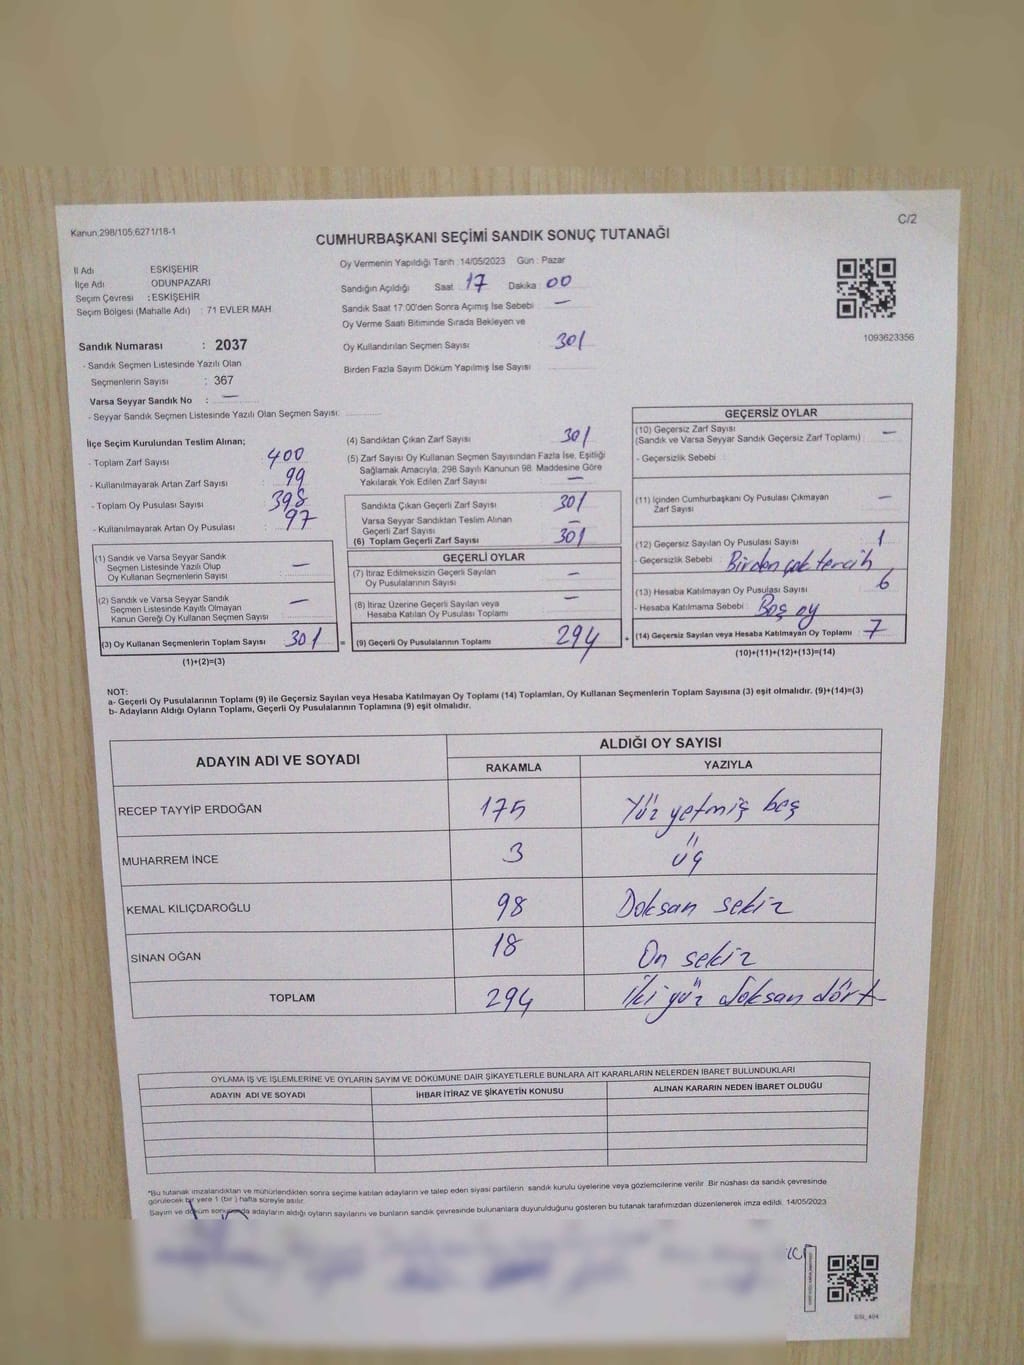 Kanun;298/105;6271/18-1
C/2
CUMHURBAŞKANI SEÇİMİ SANDIK SONUÇ TUTANAĞI
İl Adı ESKİŞEHİR
İlçe Adı ODUNPAZARI
Seçim Çevresi : ESKİŞEHİR
Seçim Bölgesi (Mahalle Adı) : 71 EVLER MAH
Sandık Numarası : 2037
- Sandık Seçmen Listesinde Yazılı Olan
Seçmenlerin Sayısı : 367
Varsa Seyyar Sandık No : —
- Seyyar Sandık Seçmen Listesinde Yazılı Olan Seçmen Sayısı:
Oy Vermenin Yapıldığı Tarih : 14/05/2023 Gün : Pazar
Sandığın Açıldığı Saat : 17 Dakika : 00
Sandık Saat 17:00'den Sonra Açımış İse Sebebi : —
Oy Verme Saati Bitiminde Sırada Bekleyen ve
Oy Kullandırılan Seçmen Sayısı 301
Birden Fazla Sayım Döküm Yapılmış İse Sayısı
1093623356
İlçe Seçim Kurulundan Teslim Alınan;
- Toplam Zarf Sayısı : 400
- Kullanılmayarak Artan Zarf Sayısı : 99
- Toplam Oy Pusulası Sayısı : 398
- Kullanılmayarak Artan Oy Pusulası : 97
(1) Sandık ve Varsa Seyyar Sandık
Seçmen Listesinde Yazılı Olup
Oy Kullanan Seçmenlerin Sayısı —
(2) Sandık ve Varsa Seyyar Sandık
Seçmen Listesinde Kayıtlı Olmayan
Kanun Gereği Oy Kullanan Seçmen Sayısı —
(3) Oy Kullanan Seçmenlerin Toplam Sayısı 301 =
(1)+(2)=(3)
(4) Sandıktan Çıkan Zarf Sayısı 301
(5) Zarf Sayısı Oy Kullanan Seçmen Sayısından Fazla İse, Eşitliği
Sağlamak Amacıyla, 298 Sayılı Kanunun 98. Maddesine Göre
Yakılarak Yok Edilen Zarf Sayısı —
Sandıkta Çıkan Geçerli Zarf Sayısı 301
Varsa Seyyar Sandıktan Teslim Alınan
Geçerli Zarf Sayısı —
(6) Toplam Geçerli Zarf Sayısı 301
GEÇERLİ OYLAR
(7) İtiraz Edilmeksizin Geçerli Sayılan
Oy Pusulalarının Sayısı —
(8) İtiraz Üzerine Geçerli Sayılan veya
Hesaba Katılan Oy Pusulası Toplamı —
(9) Geçerli Oy Pusulalarının Toplamı 294 +
GEÇERSİZ OYLAR
(10) Geçersiz Zarf Sayısı
(Sandık ve Varsa Seyyar Sandık Geçersiz Zarf Toplamı) —
- Geçersizlik Sebebi
(11) İçinden Cumhurbaşkanı Oy Pusulası Çıkmayan
Zarf Sayısı —
(12) Geçersiz Sayılan Oy Pusulası Sayısı 1
- Geçersizlik Sebebi : Birden çok tercih
(13) Hesaba Katılmayan Oy Pusulası Sayısı 6
- Hesaba Katılmama Sebebi : Boş oy
(14) Geçersiz Sayılan veya Hesaba Katılmayan Oy Toplamı : 7
(10)+(11)+(12)+(13)=(14)
NOT:
a- Geçerli Oy Pusulalarının Toplamı (9) ile Geçersiz Sayılan veya Hesaba Katılmayan Oy Toplamı (14) Toplamları, Oy Kullanan Seçmenlerin Toplam Sayısına (3) eşit olmalıdır. (9)+(14)=(3)
b- Adayların Aldığı Oyların Toplamı, Geçerli Oy Pusulalarının Toplamına (9) eşit olmalıdır.
ADAYIN ADI VE SOYADI
ALDIĞI OY SAYISI
RAKAMLA YAZIYLA
RECEP TAYYİP ERDOĞAN 175 Yüz yetmiş beş
MUHARREM İNCE 3 üç
KEMAL KILIÇDAROĞLU 98 Doksan sekiz
SİNAN OĞAN 18 On sekiz
TOPLAM 294 İki yüz doksan dört
OYLAMA İŞ VE İŞLEMLERİNE VE OYLARIN SAYIM VE DÖKÜMÜNE DAİR ŞİKAYETLERLE BUNLARA AİT KARARLARIN NELERDEN İBARET BULUNDUKLARI
ADAYIN ADI VE SOYADI İHBAR İTİRAZ VE ŞİKAYETİN KONUSU ALINAN KARARIN NEDEN İBARET OLDUĞU
*Bu tutanak imzalandıktan ve mühürlendikten sonra seçime katılan adayların ve talep eden siyasi partilerin sandık kurulu üyelerine veya gözlemcilerine verilir. Bir nüshası da sandık çevresinde
görülecek bir yere 1 (bir ) hafta süreyle asılır.
Sayım ve döküm sonucunda adayların aldığı oyların sayılarını ve bunların sandık çevresinde bulunanlara duyurulduğunu gösteren bu tutanak tarafımızdan düzenlenerek imza edildi. 14/05/2023